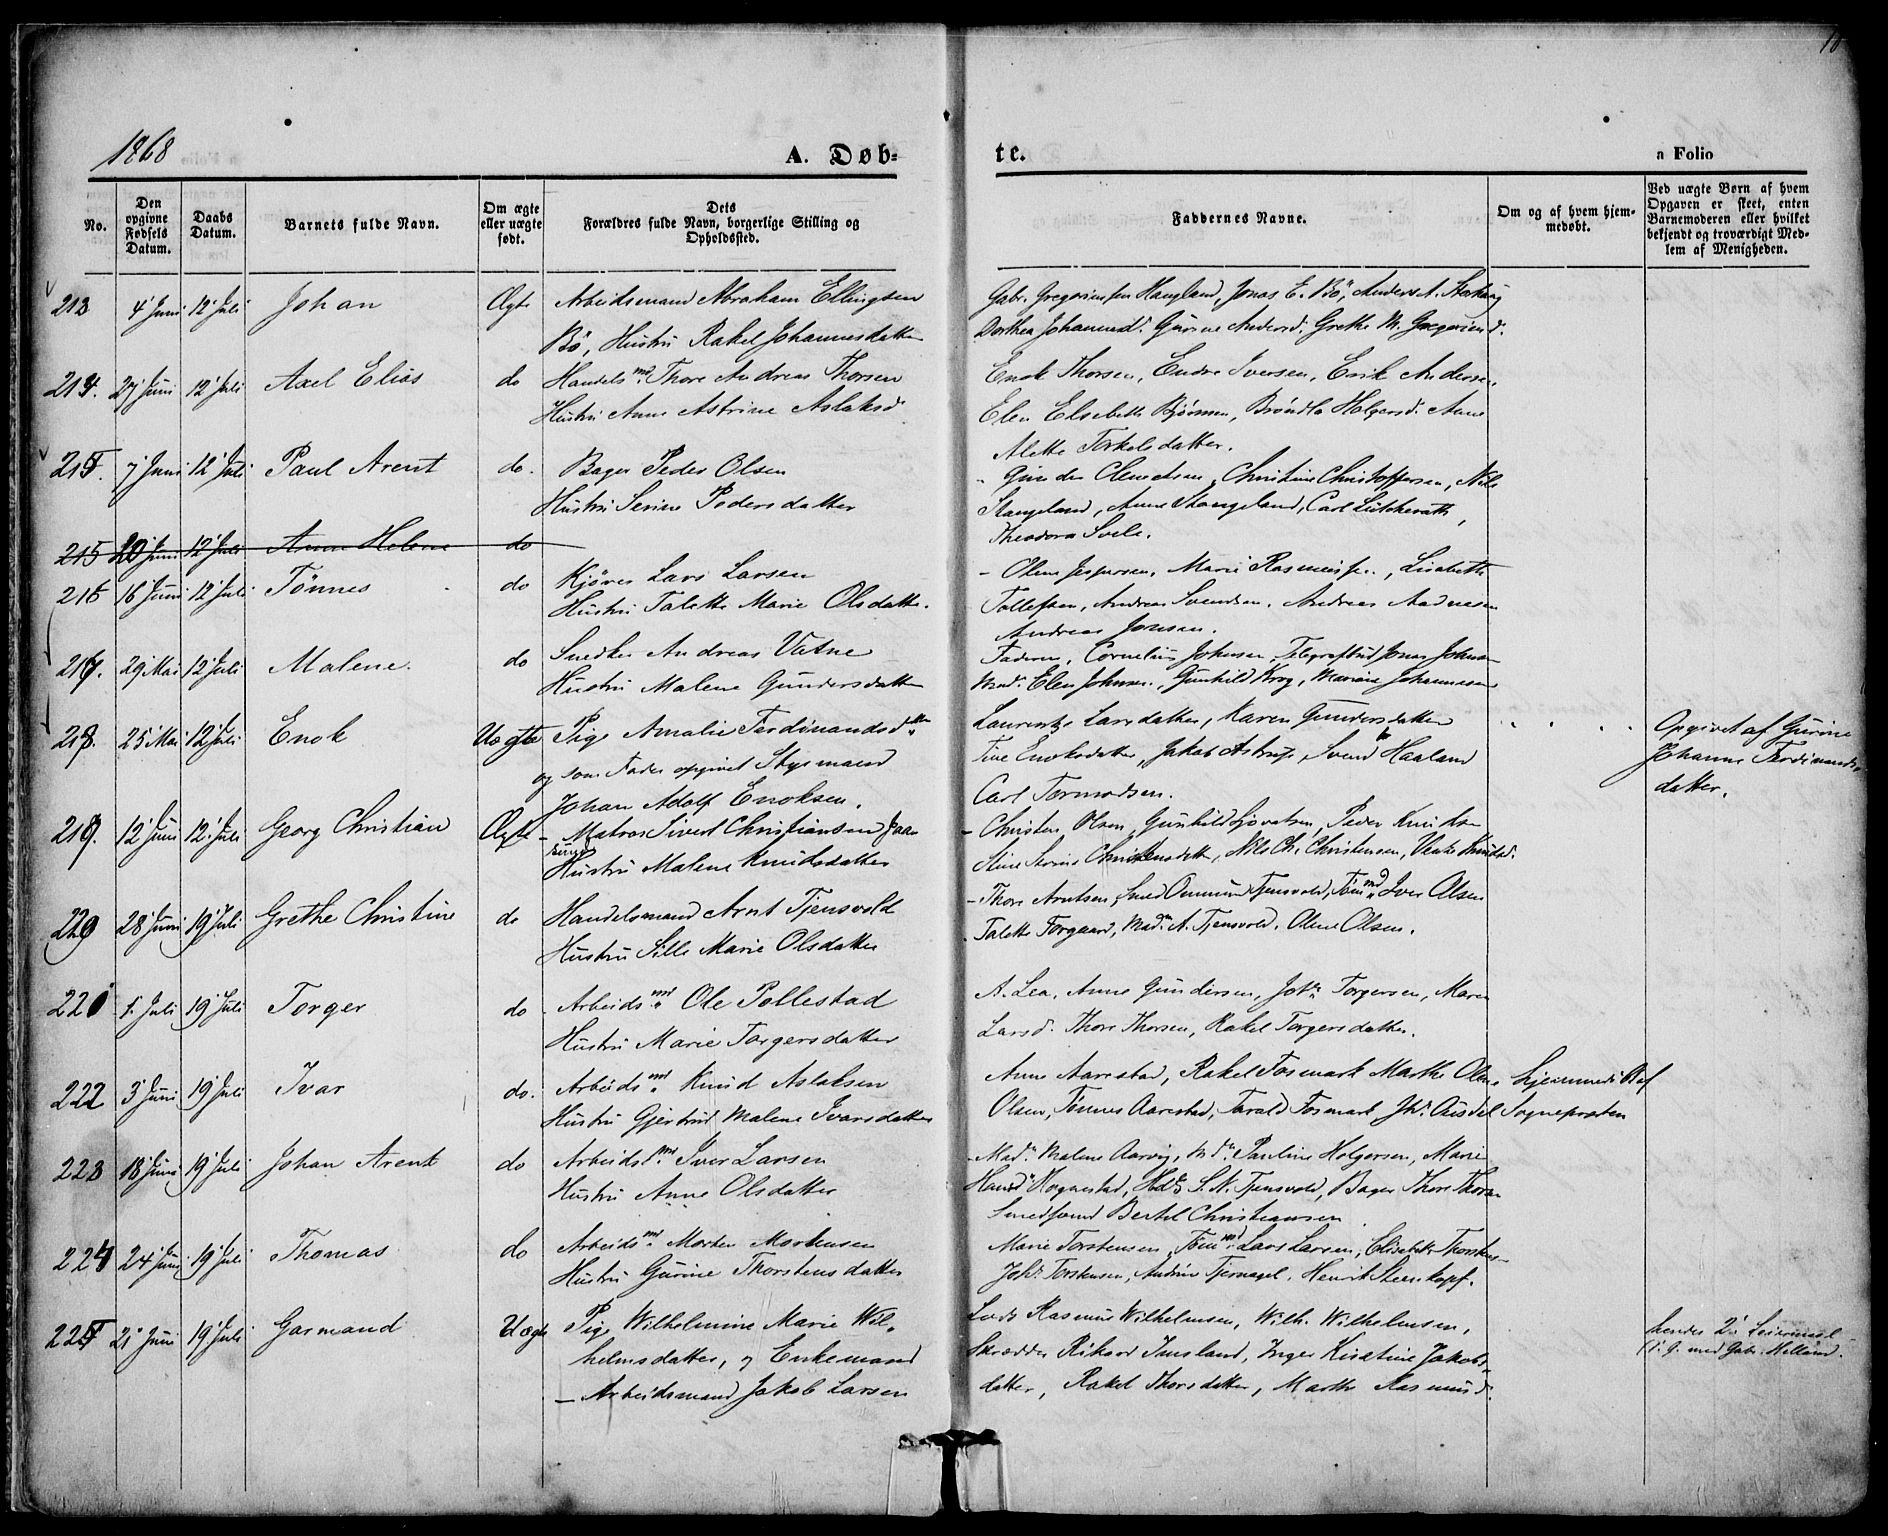 10
1868
A. Døb=
te.
a Folio
No.
Den opgivne Fødsels Datum.
Daabs Datum.
Barnets fulde Navn.
Om ægte eller uægte født.
Dets Forældres fulde Navn, borgerlige Stilling og Opholdssted.
Faddernes Navne.
Om og af hvem hjemmedøbt.
Ved uægte Børn af hvem Opgaven er skeet, enten Barnemoderen eller hvilket bekjendt og troværdigt Medlem af Menigheden.
213 4' Juni 12' Juli Johan Ægte Arbeidsmand Abraham Ellingsen
Bö, Hustru Rakel Johannesdatter
Gabr. Gregoriussen Haugland, Jonas E. Bö, Anders A.
Dorthea Johannesd. Gurine Andersd. Grethe M. Gregoriusd.
214. 27' Juni 12' Juli Axel Elias do Handelsmd. Thore Andreas Thorsen
Hustru Anne Astrine Aslaksd
Enok Thorsen, Endre Iversen, Erik Andersen,
Elen Elsebeth Bjørnsen, Brøndla Holgersd. Anne
Alette Torkelsdatter.
215. 7' Juni 12' Juli Paul Arent do. Bager Peder Olsen
Hustru Serine Pedersdatter
Gunder Clemetsen, Christine Christoffersen, Nils
Stangeland, Anne Stangeland, Carl Lütcherath,
Theodora Svele.
215 20' Juni 12' Juli Anne Helene do
216 16' Juni 12' Juli Tönnes do Kjører Lars Larsen
Hustru Talette Marie Olsdatter.
Olene Jespersen, Marie Rasmussen, Lisabeth
Tollefsen, Andreas Svendsen, Andreas Aadnesen
Andreas Jonsen.
217. 29' Mai 12' Juli Malene. do Snedker Andreas Vatne
Hustru Malene Gundersdatter
Faderen, Cornelius Johnsen, Telegrafbud Jonas Johnsen
Mad. Elen Johnsen, Gunhild Krog, Mariane Johannesen
218. 25' Mai 12' Juli Enok Uægte Pige Amalie Ferdinandsdtter
og som Fader opgivet Styrmand
Johan Adolf Enoksen.
Laurentze Larsdatter, Karen Gundersdatter
Tine Enoksdatter, Jakob Astrup, Svend Haaland
Carl Tormodsen.
Opgivet af Gurine
Johanne Ferdinands-
datter.
219. 12' Juni 12' Juli Georg Christian Ægte Matros Sivert Christiansen
Hustru Malene Knudsdatter
Christen Olsen, Gunhild Sjovatsen, Peder Knudsen
Stine Serine Christensdatter, Nils Ch. Christensen, Venke Knudsd.
220 28' Juni 19' Juli Grethe Christine do Handelsmand Arnt Tjensvold
Hustru Sille Marie Olsdatter
Thore Arntsen, Smed Ommund Tjensvold, Tømmd. Iver Olsen
Talette Torgaard, Mad. A. Tjensvold, Olene Olsen.
221 1' Juli 19' Juli Torger do Arbeidsmd. Ole Pollestad
Hustru Marie Torgersdatter
A. Lea, Anne Gundersen, John Torgersen, Maren
Larsd. Thore Thorsen, Rakel Torgersdatter.
222 3' Juni 19' Juli Ivar do. Arbeidsmd. Knud Aslaksen
Hustru Gjertrud Malene Ivarsdatter
Anne Aarestad, Rakel Fosmark Marthe Olene
Olsen, Tönnes Aarestad, Tarald Fosmark, Ausdel
Hjemmedöbt af
Sognepresten
223 18' Juni 19' Juli Johan Arent do Arbeidsmd. Iver Larsen
Hustru Anne Olsdatter
Mad. Malene Aarvig, Md. Pauline Holgersen, Marie
Hansd. Hognestad, Hdlr S. N. Tjensvold, Bager Thore Thorsen
Smedsvend Bertel Christiansen
224 24' Juni 19' Juli Thomas do Arbeidsmd. Morten Mortensen
Hustru Gurine Thorstensdatter
Marie Torstensen, Tømmd. Lars Larsen, Elisabeth Thorstensen
Joh. Torstensen, Andrine Tjernagel, Henrik Steenkopf.
225 21' Juni 19' Juli Garmand Uægte Pige Wilhelmine Marie Wil-
helmsdatter, og Enkemand
Arbeidsmand Jakob Larsen
Lods Rasmus Wilhelmsen, Wilh. Wilhelmsen,
Skrædder Rikard Imsland, Inger Kirstine Jakobs-
datter, Rakel Thorsdatter, Marthe Rasmusd.
hendes 2' Leiermaal
1' G. med Gabr. Helland.